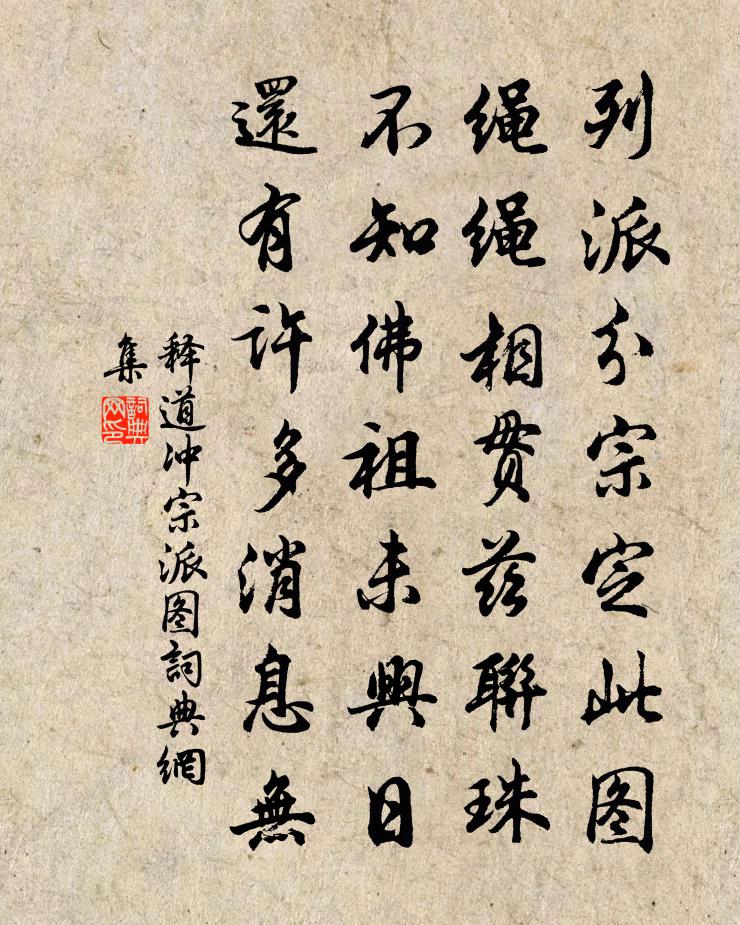 列派分宗定此图
绳绳相贯兹联珠
不知佛祖未興日
還有许多消息無
释道冲宗派图詞典網
集
詞典
网印